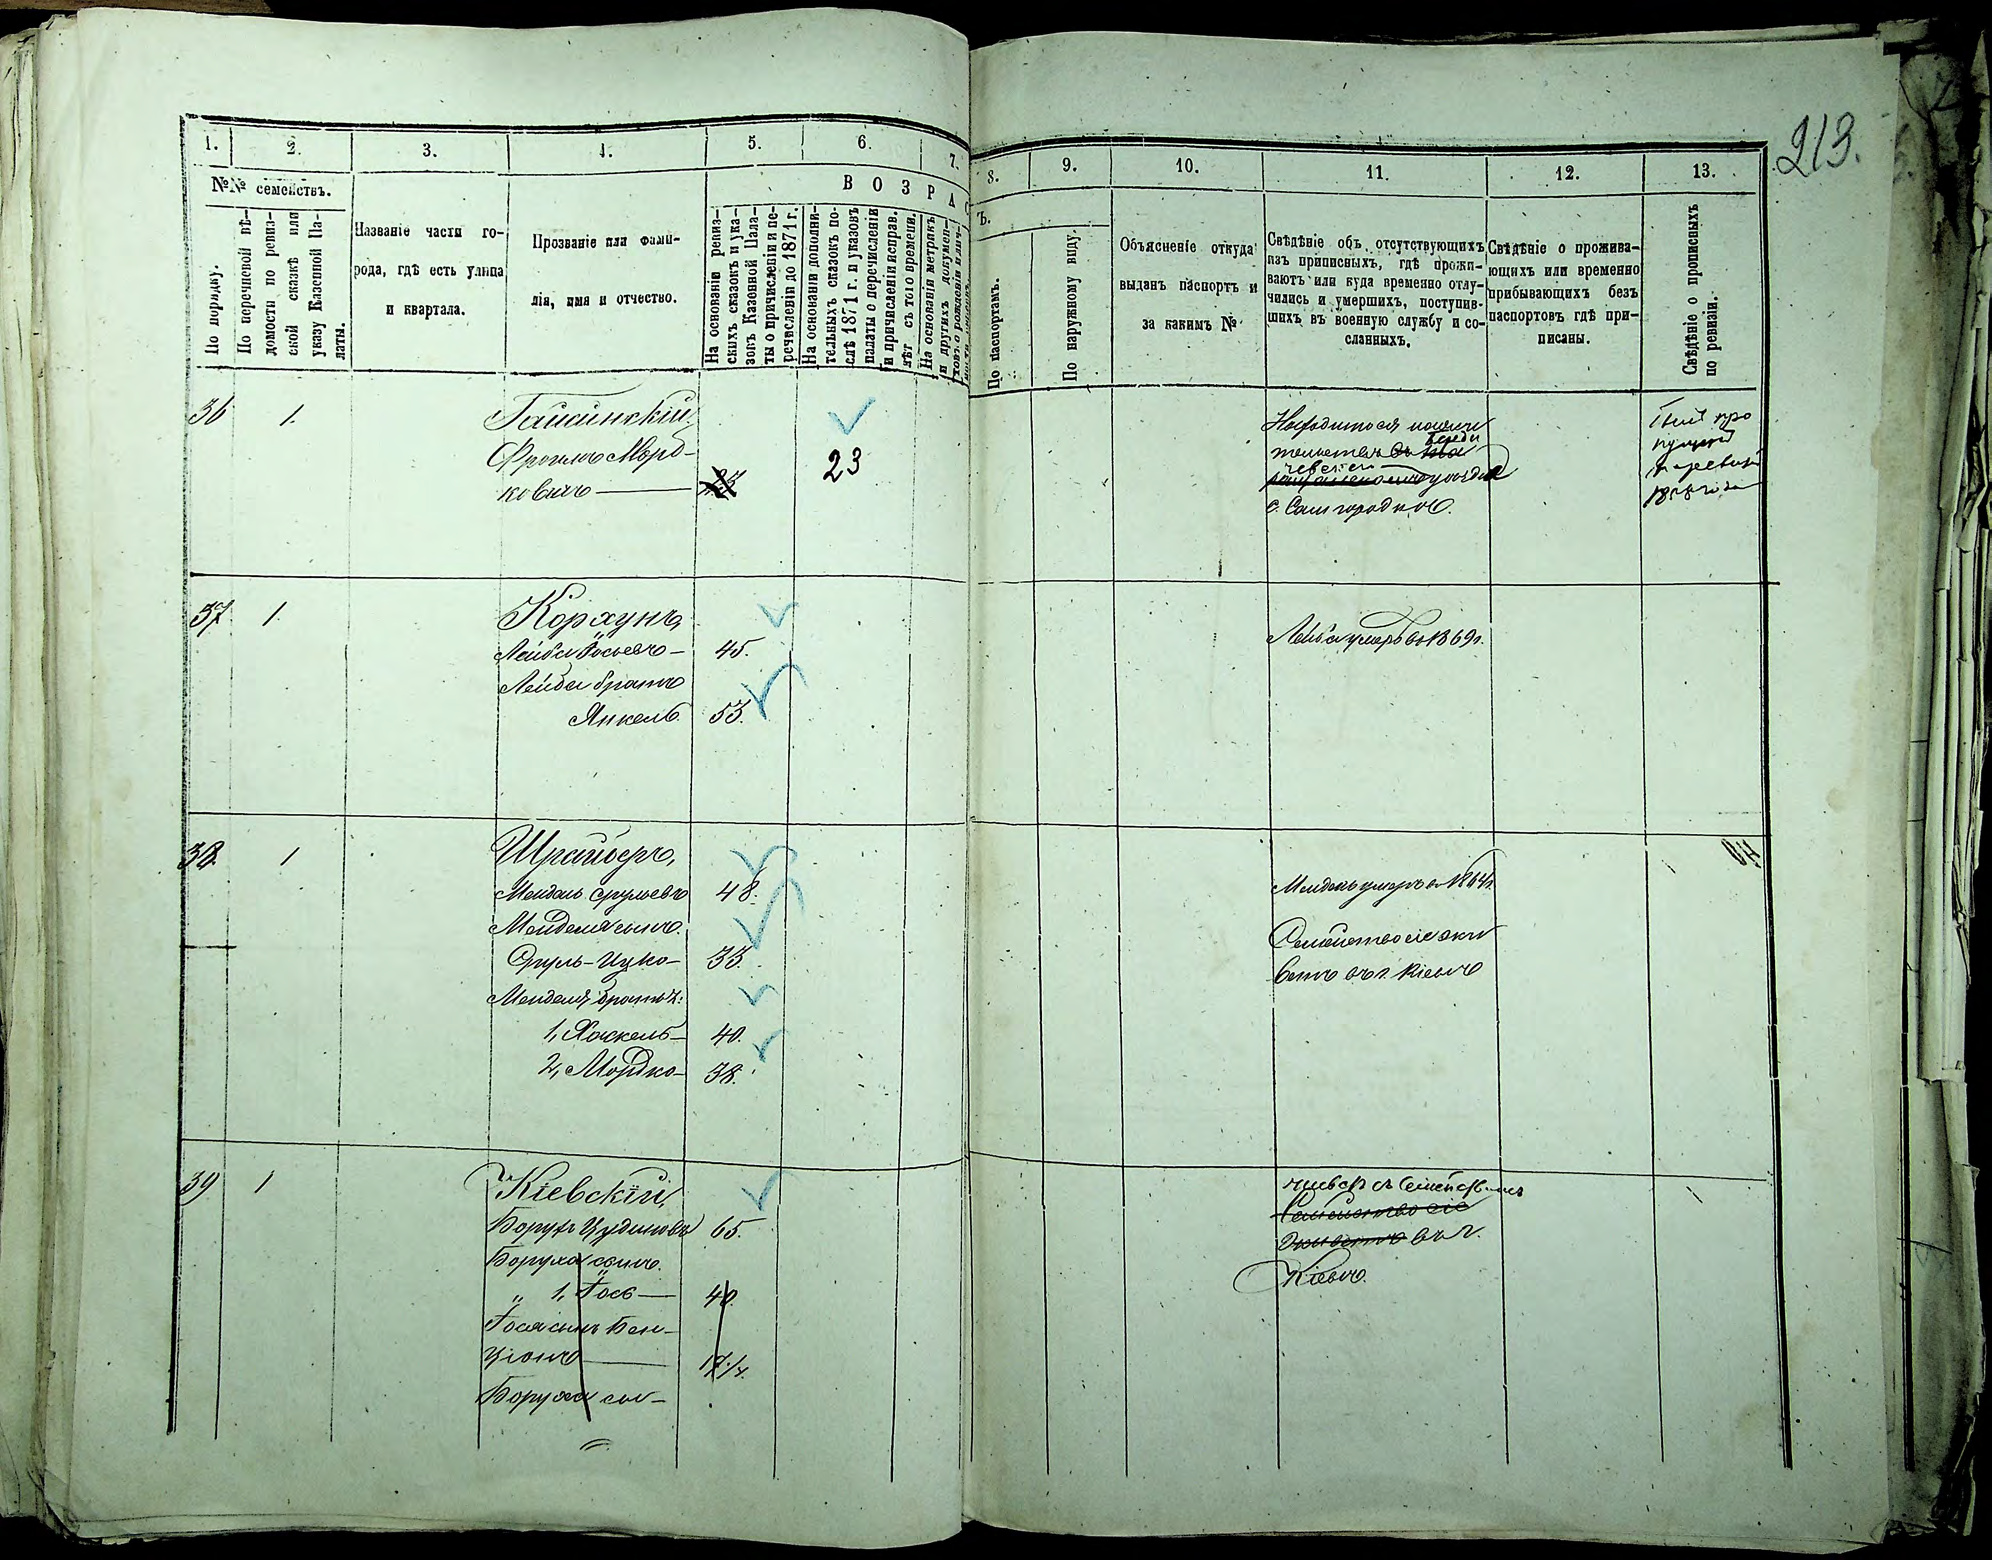 213.
1.
2.
3.
4.
5.
6.
7.
8.
9.
10.
11.
12.
13.
№№ семействъ.
ВОЗРАС
Ъ.
По порядку.
По перечневой вѣ-
домости по ревиз-
ской сказкѣ или
указу Казенной Па-
латы.
Названіе части го-
рода, гдѣ есть улица
и квартала.
Прозваніе или фами-
лія, имя и отчество.
На основаніи ревиз-
скихъ сказокъ и ука-
зовъ Казенной Пала-
ты о причисленіи и пе-
речисленіи до 1871 г.
На основаніи дополни-
тельныхъ сказокъ по-
слѣ 1871 г. и указовъ
палаты о перечисленіи
и причисленіи исправ.
лѣт съ того времени.
На основаніи метрикъ
и другихъ докумен-
По паспортамъ.
По наружному виду.
Объясненіе откуда
выданъ паспортъ и
за какимъ №
Свѣдѣніе объ отсутствующихъ
изъ приписныхъ, гдѣ прожи-
ваютъ или куда временно отлу-
чились и умершихъ, поступив-
шихъ въ военную службу и со-
сланныхъ.
Свѣдѣніе о прожива-
ющихъ или временно
прибывающихъ безъ
паспортовъ гдѣ при-
писаны.
Свѣдѣніе о прописныхъ
по ревизіи.
36 1.
Гайсинскій
Фроимъ Морд-
ковичъ — 23
с. Самгородкѣ.
37 1.
Корхунъ,
Лейба Іосьевъ — 45.
Лейбы братъ
Янкель 53.
Лейба умеръ въ 1869 г.
38. 1
Шрайберъ,
Мендель Срульевъ 48.
Менделя сынъ.
Сруль-Ицко — 33.
Менделя братья:
1, Хаскель — 40.
2, Мордко — 38.
Мендель умеръ въ 1864 г.
Семейство сіе жи
ветъ въ г. Кіевѣ
39 1
Кіевскій,
Борухъ 65.
Боруха сынъ.
„ 1, Іось — 40.
Іося сынъ Бен-
ціонъ —
Боруха сы-
Семейство сіе
живетъ въ г.
Кіевѣ.